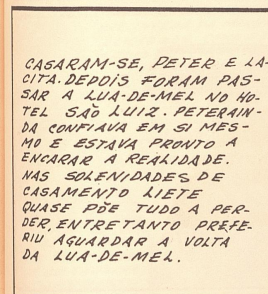 CASARAM-SE, PETER E LA-
CITA. DEPOIS FORAM PAS-
SAR A LUA-DE-MEL NO HO-
TEL SÃO LUIZ. PETERAIN-
DA CONFIAVA EM SI MES-
MO E ESTAVA PRONTO A
ENCARAR A REALIDADE.
NAS SOLENIDADES DE
CASAMENTO LIETE
QUASE PÕE TUDO A PER-
DER, ENTRETANTO PREFE-
RIU AGUARDAR A VOLTA
DA LUA-DE-MEL.